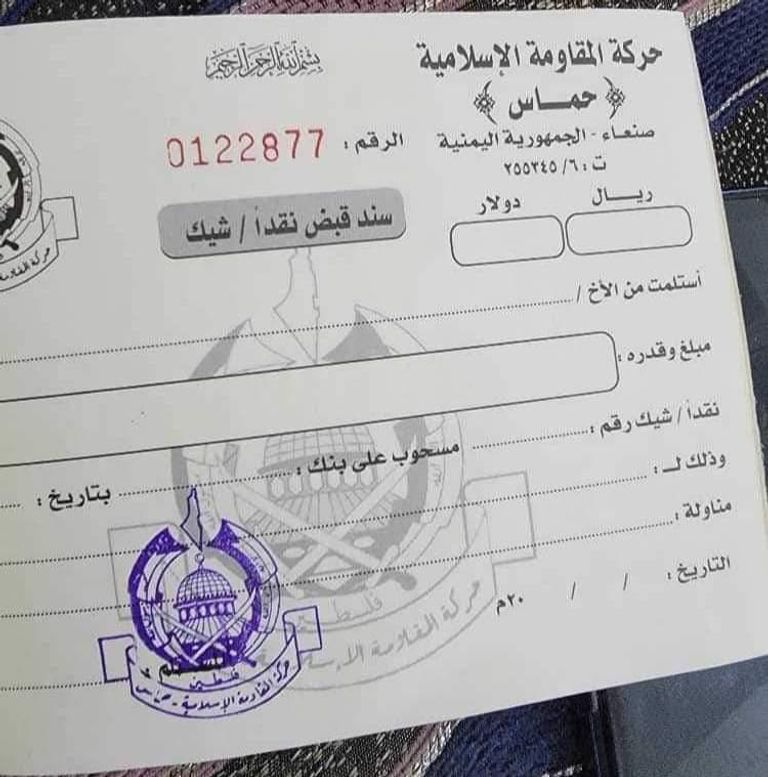 بسم الله الرحمن الرحيم
حركة المقاومة الإسلامية
﴿ حمـاس ﴾
صنعاء - الجمهورية اليمنية
ت : ٦/ ٢٥٥٣٤٥
الرقم : 0122877
ريـال دولار
سند قبض نقداً / شيك
أستلمت من الأخ /
مبلغ وقدره :
نقداً / شيك رقم : مسحوب على بنك : بتاريخ :
وذلك لـ :
مناولة :
التاريخ : / / ٢٠م
المستلم
فلسطين
حركة المقاومة الإسلامية - حماس
فلسطين
حركة المقاومة الإسلا
حركة المقاومة